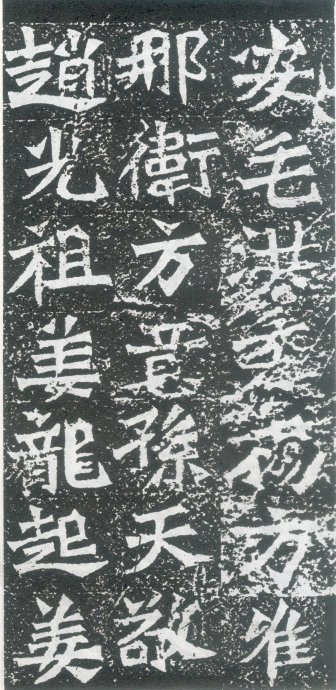 安毛洪方唯
那衛方意孫天敬
趙光祖姜龍起姜